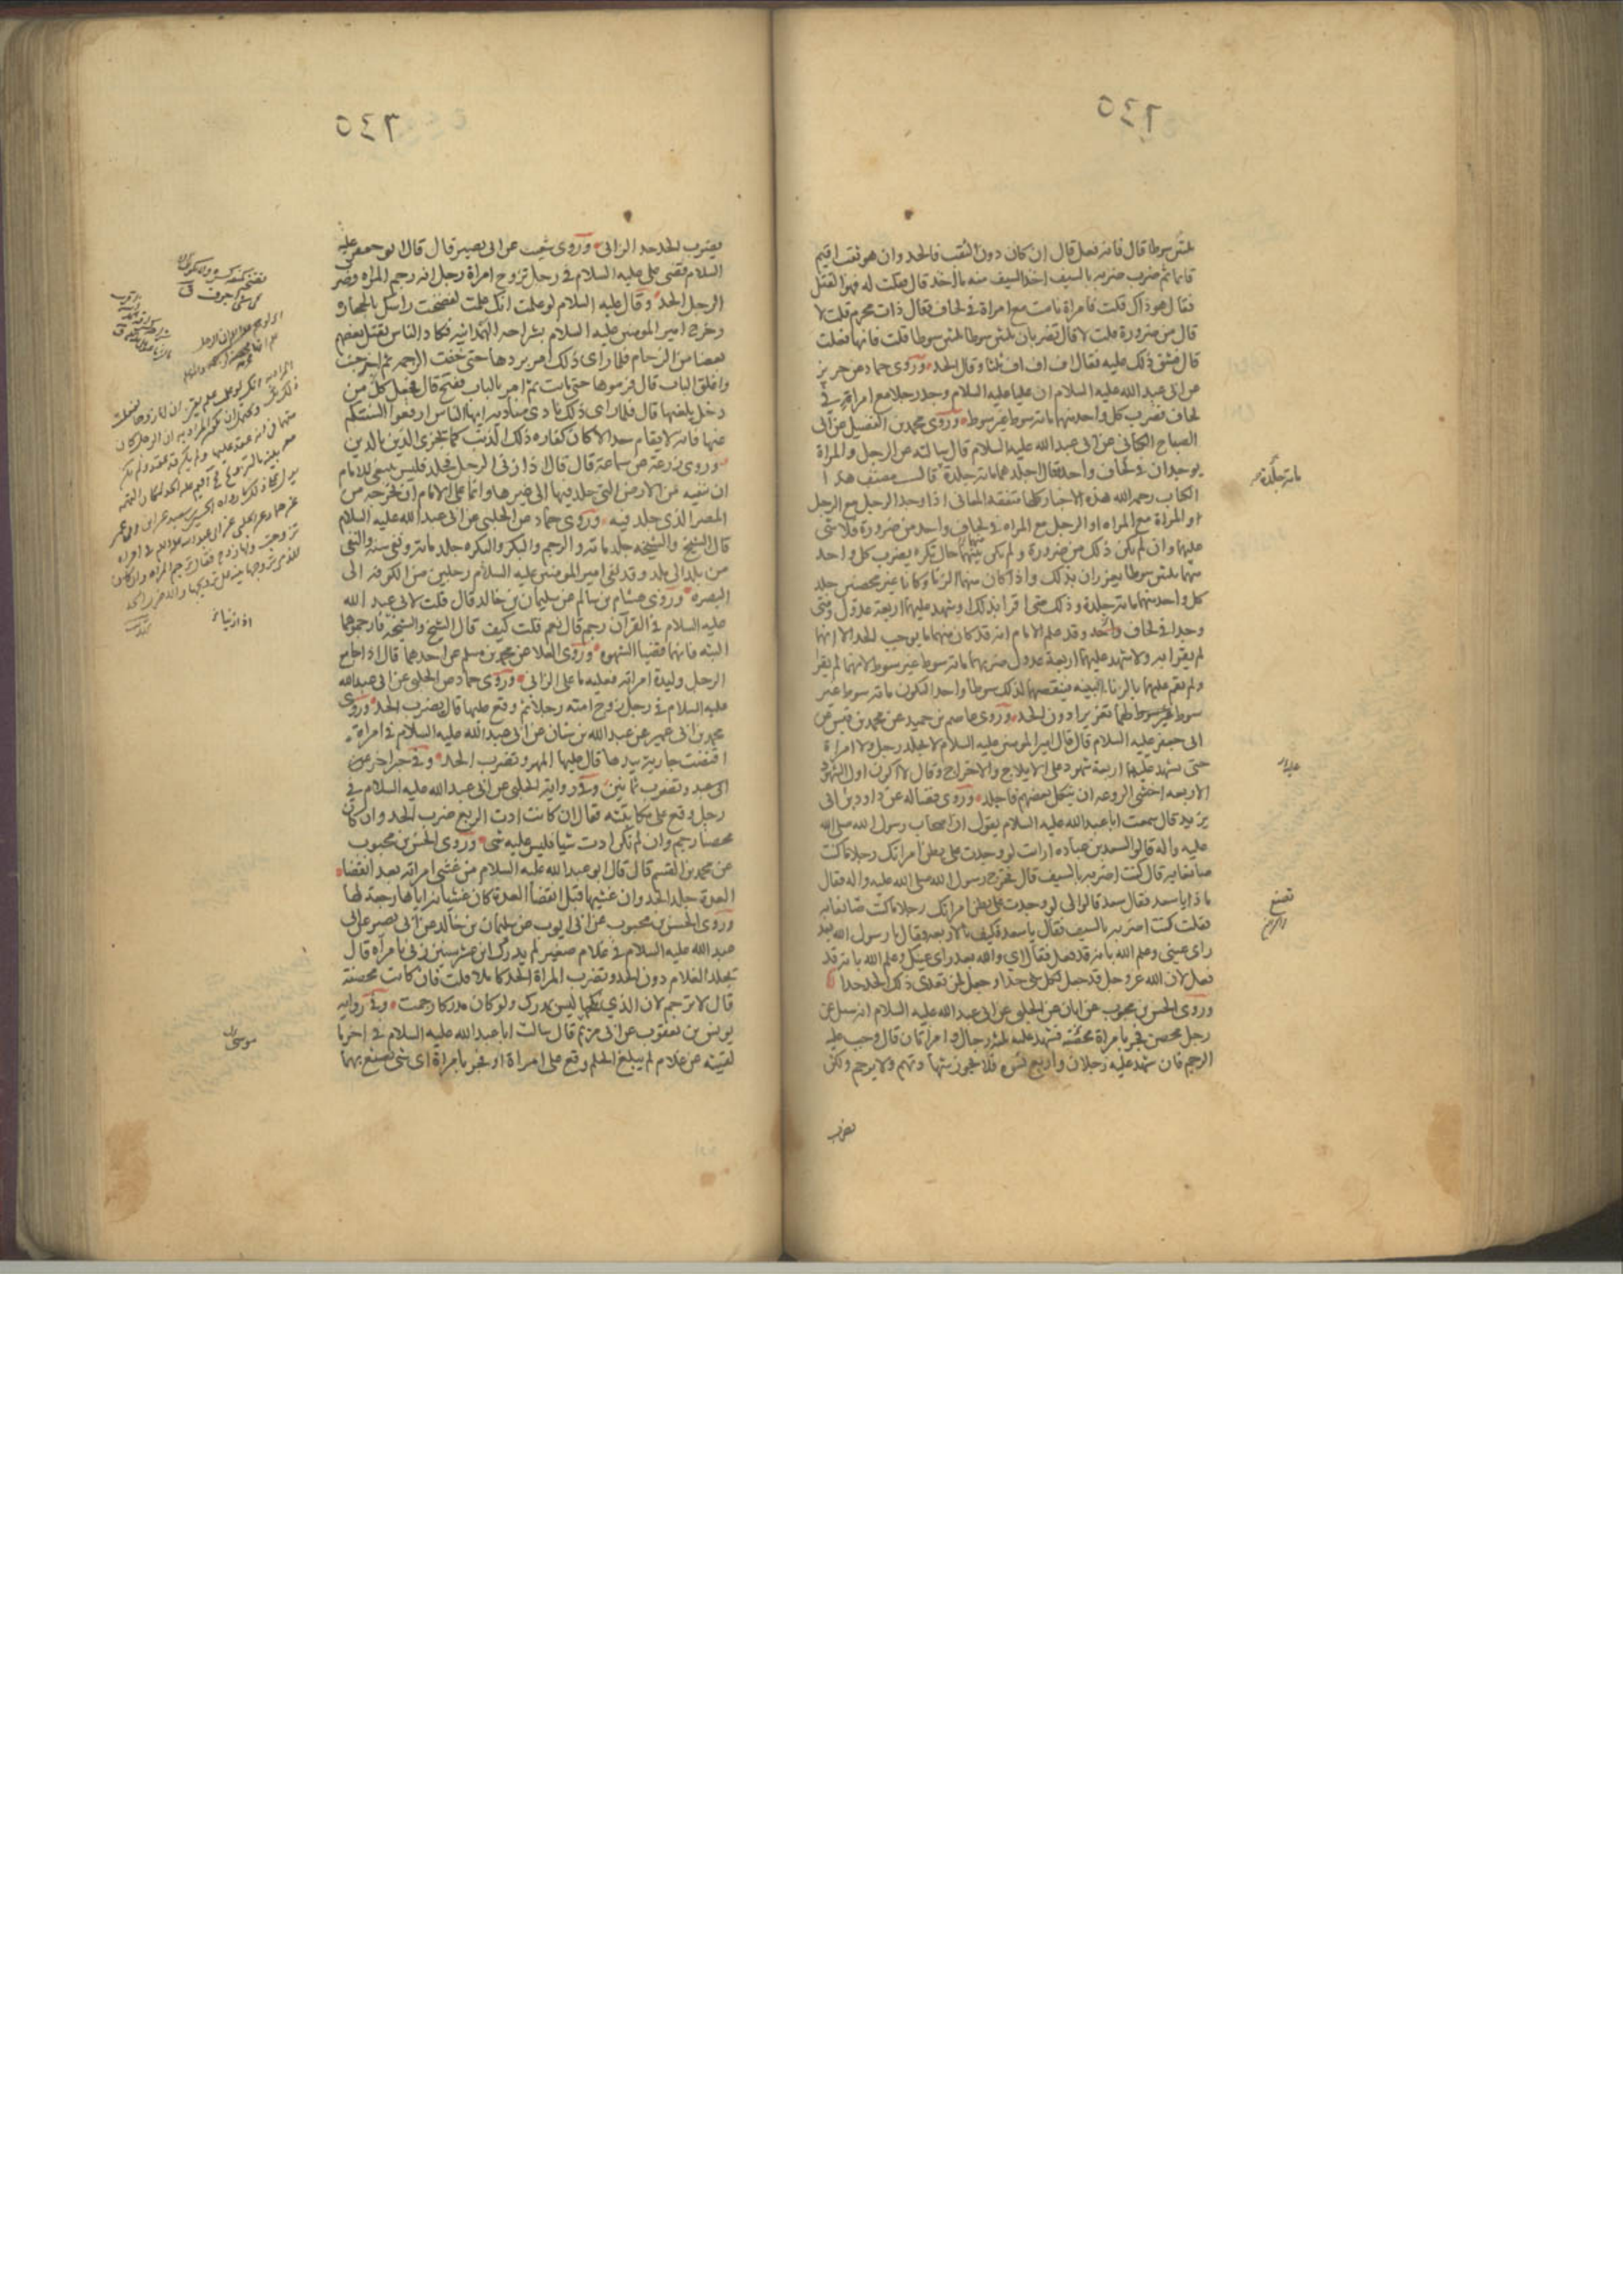 ٦٤٥
ثلثين سوطا قال فانه فعل قال ان كان دون الثقب فالحد وان هو ثقب اقيم
قايما ثم ضرب ضربة بالسيف اخذ السيف منه ما اخذ قال فقلت له فهو القتل
فقال هو ذاك قلت فامراة نامت مع امراة في لحاف فقال ذات محرم قلت لا
قال من ضرورة قلت لا قال تضربان ثلثين سوطا ثلثين سوطا قلت فانها فعلت
قال فشق ذلك عليه فقال اف اف اف ثلثا وقال الحد وروى حماد عن حريز
عن ابي عبد الله عليه السلام ان عليا عليه السلام وجد رجلا مع امراة في
لحاف فضرب كل واحد منهما مائة سوط غير سوط وروى محمد بن الفضيل عن ابي
الصباح الكناني عن ابي عبد الله عليه السلام قال سالته عن الرجل والمراة
يوجدان في لحاف واحد فقال اجلدهما مائة جلدة قال مصنف هذا
الكتاب رحمه الله هذه الاخبار كلها متفقة المعاني اذا وجد الرجل مع الرجل
او المراة مع المراه او الرجل مع المراه في لحاف واحد من ضرورة فلا شي
عليهما وان لم يكن ذلك من ضرورة ولم يكن منهما حال تكره يضرب كل واحد
منهما ثلثين سوطا يعزران بذلك واذا كان منهما الزنا وكانا غير محصنين جلد
كل واحد منهما مائة جلدة وذلك متى اقرا بذلك او شهد عليهما اربعة عدول ومتى
وجدا في لحاف واحد وقد علم الامام انه قد كان منهما ما يوجب الحد الا انهما
لم يقرا به ولا شهد عليهما اربعة عدول ضربهما مائة سوط غير سوط لانهما لم يقرا
ولم تقم عليهما بالزنا البينه فينقصهما لذلك سوطا واحدا ليكون مائة سوط غير
سوط لهما تعزيرا دون الحد وروى عاصم بن حميد عن محمد بن قيس عن
ابي جعفر عليه السلام قال قال امير المومنين عليه السلام لا يجلد رجل ولا امراة
حتى يشهد عليهما اربعة شهود على الايلاج والاخراج وقال لا اكون اول الشهود
الاربعه اخشى الروعه ان ينكل بعضهم فاجلد وروى فضاله عن داود بن ابي
يزيد قال سمعت ابا عبد الله عليه السلام يقول ان اصحاب رسول الله صلى الله
عليه واله قالوا لسعد بن عباده ارايت لو وجدت على بطن امراتك رجلا ما كنت
صانعا به قال كنت اضربه بالسيف قال فخرج رسول الله صلى الله عليه واله فقال
ما ذا يا سعد فقال سعد قالوا لي لو وجدت على بطن امراتك رجلا ما كنت صانعا به
فقلت كنت اضربه بالسيف فقال يا سعد فكيف بالاربعه فقال يا رسول الله بعد
راى عيني وعلم الله بانه قد فعل فقال اي والله بعد راى عينك وعلم الله بانه قد
فعل لان الله عز وجل قد جعل لكل شي حدا وجعل لمن تعدى ذلك الحد حدا
وروى الحسن بن محبوب عن ابان عن الحلبي عن ابي عبد الله عليه السلام انه سئل عن
رجل محصن فجر بامراة محصنة فشهد عليه ثلثة رجال وامراتان قال وجب عليه
الرجم فان شهد عليه رجلان واربع نسوه فلا تجوز شهادتهم ولا يرجم ولكن
يضرب
مائة جلدة
تصنع
٦٤٥
يضرب الحد حد الزاني وروى شعيب عن ابي بصير قال قال ابو جعفر عليه
السلام قضى علي عليه السلام في رجل تزوج امراة رجل انه رجم المراه وضرب
الرجل الحد وقال عليه السلام لو علمت انك علمت لفضخت راسك بالحجارة
وخرج امير المومنين عليه السلام بشراحه الهمدانيه فكاد الناس يقتل بعضهم
بعضا من الزحام فلما راى ذلك امر بردها حتى خفت الزحمه ثم اخرجت
واغلق الباب قال فرموها حتى ماتت ثم امر بالباب ففتح قال فجعل كل من
دخل يلعنها قال فلما راى ذلك نادى مناديه ايها الناس ارفعوا السنتكم
عنها فانه لا يقام حد الا كان كفاره ذلك الذنب كما يجزى الدين بالدين
وروى زرعة عن سماعة قال قال اذا زنى الرجل فجلد فليس ينبغي للامام
ان ينفيه من الارض التي جلد فيها الى غيرها وانما على الامام ان يخرجه من
المصر الذي جلد فيه وروى حماد عن الحلبي عن ابي عبد الله عليه السلام
قال الشيخ والشيخه جلد مائة والرجم والبكر والبكره جلد مائة ونفي سنة والنفي
من بلد الى بلد وقد نفى امير المومنين عليه السلام رجلين من الكوفه الى
البصره وروى هشام بن سالم عن سليمان بن خالد قال قلت لابي عبد الله
عليه السلام في القرآن رجم قال نعم قلت كيف قال الشيخ والشيخة فارجموهما
البته فانهما قضيا الشهوه وروى العلا عن محمد بن مسلم عن احدهما قال اذا جامع
الرجل وليدة امراته فعليه ما على الزاني وروى حماد عن الحلبي عن ابي عبد الله
عليه السلام في رجل زوج امته رجلا ثم وقع عليها قال يضرب الحد وروى
محمد بن ابي عمير عن عبد الله بن سنان عن ابي عبد الله عليه السلام في امراة
افتضت جارية بيدها قال عليها المهر وتضرب الحد وفي خبر اخر
وتضرب ثمانين وفي رواية الحلبي عن ابي عبد الله عليه السلام في
رجل وقع على مكاتبته فقال ان كانت ادت الربع ضرب الحد وان كان
محصنا رجم وان لم تكن ادت شيا فليس عليه شي وروى الحسن بن محبوب
عن محمد بن القسم قال قال ابو عبد الله عليه السلام من غشي امراته بعد انقضاء
العدة جلد الحد وان غشيها قبل انقضا العدة كان غشيانه اياها رجعة لها
وروى الحسن بن محبوب عن ابي ايوب عن سليمان بن خالد عن ابي بصير عن ابي
عبد الله عليه السلام في غلام صغير لم يدرك ابن عشر سنين زنى بامراه قال
يجلد الغلام دون الحد وتضرب المراة الحد كاملا قلت فان كانت محصنة
قال لا ترجم لان الذي نكحها ليس بمدرك ولو كان مدركا رجمت وفي رواية
يونس بن يعقوب عن ابي مريم قال سالت ابا عبد الله عليه السلام في اخر ما
لقيته عن غلام لم يبلغ الحلم وقع على امراة او فجر بامراة اي شي يصنع بهما